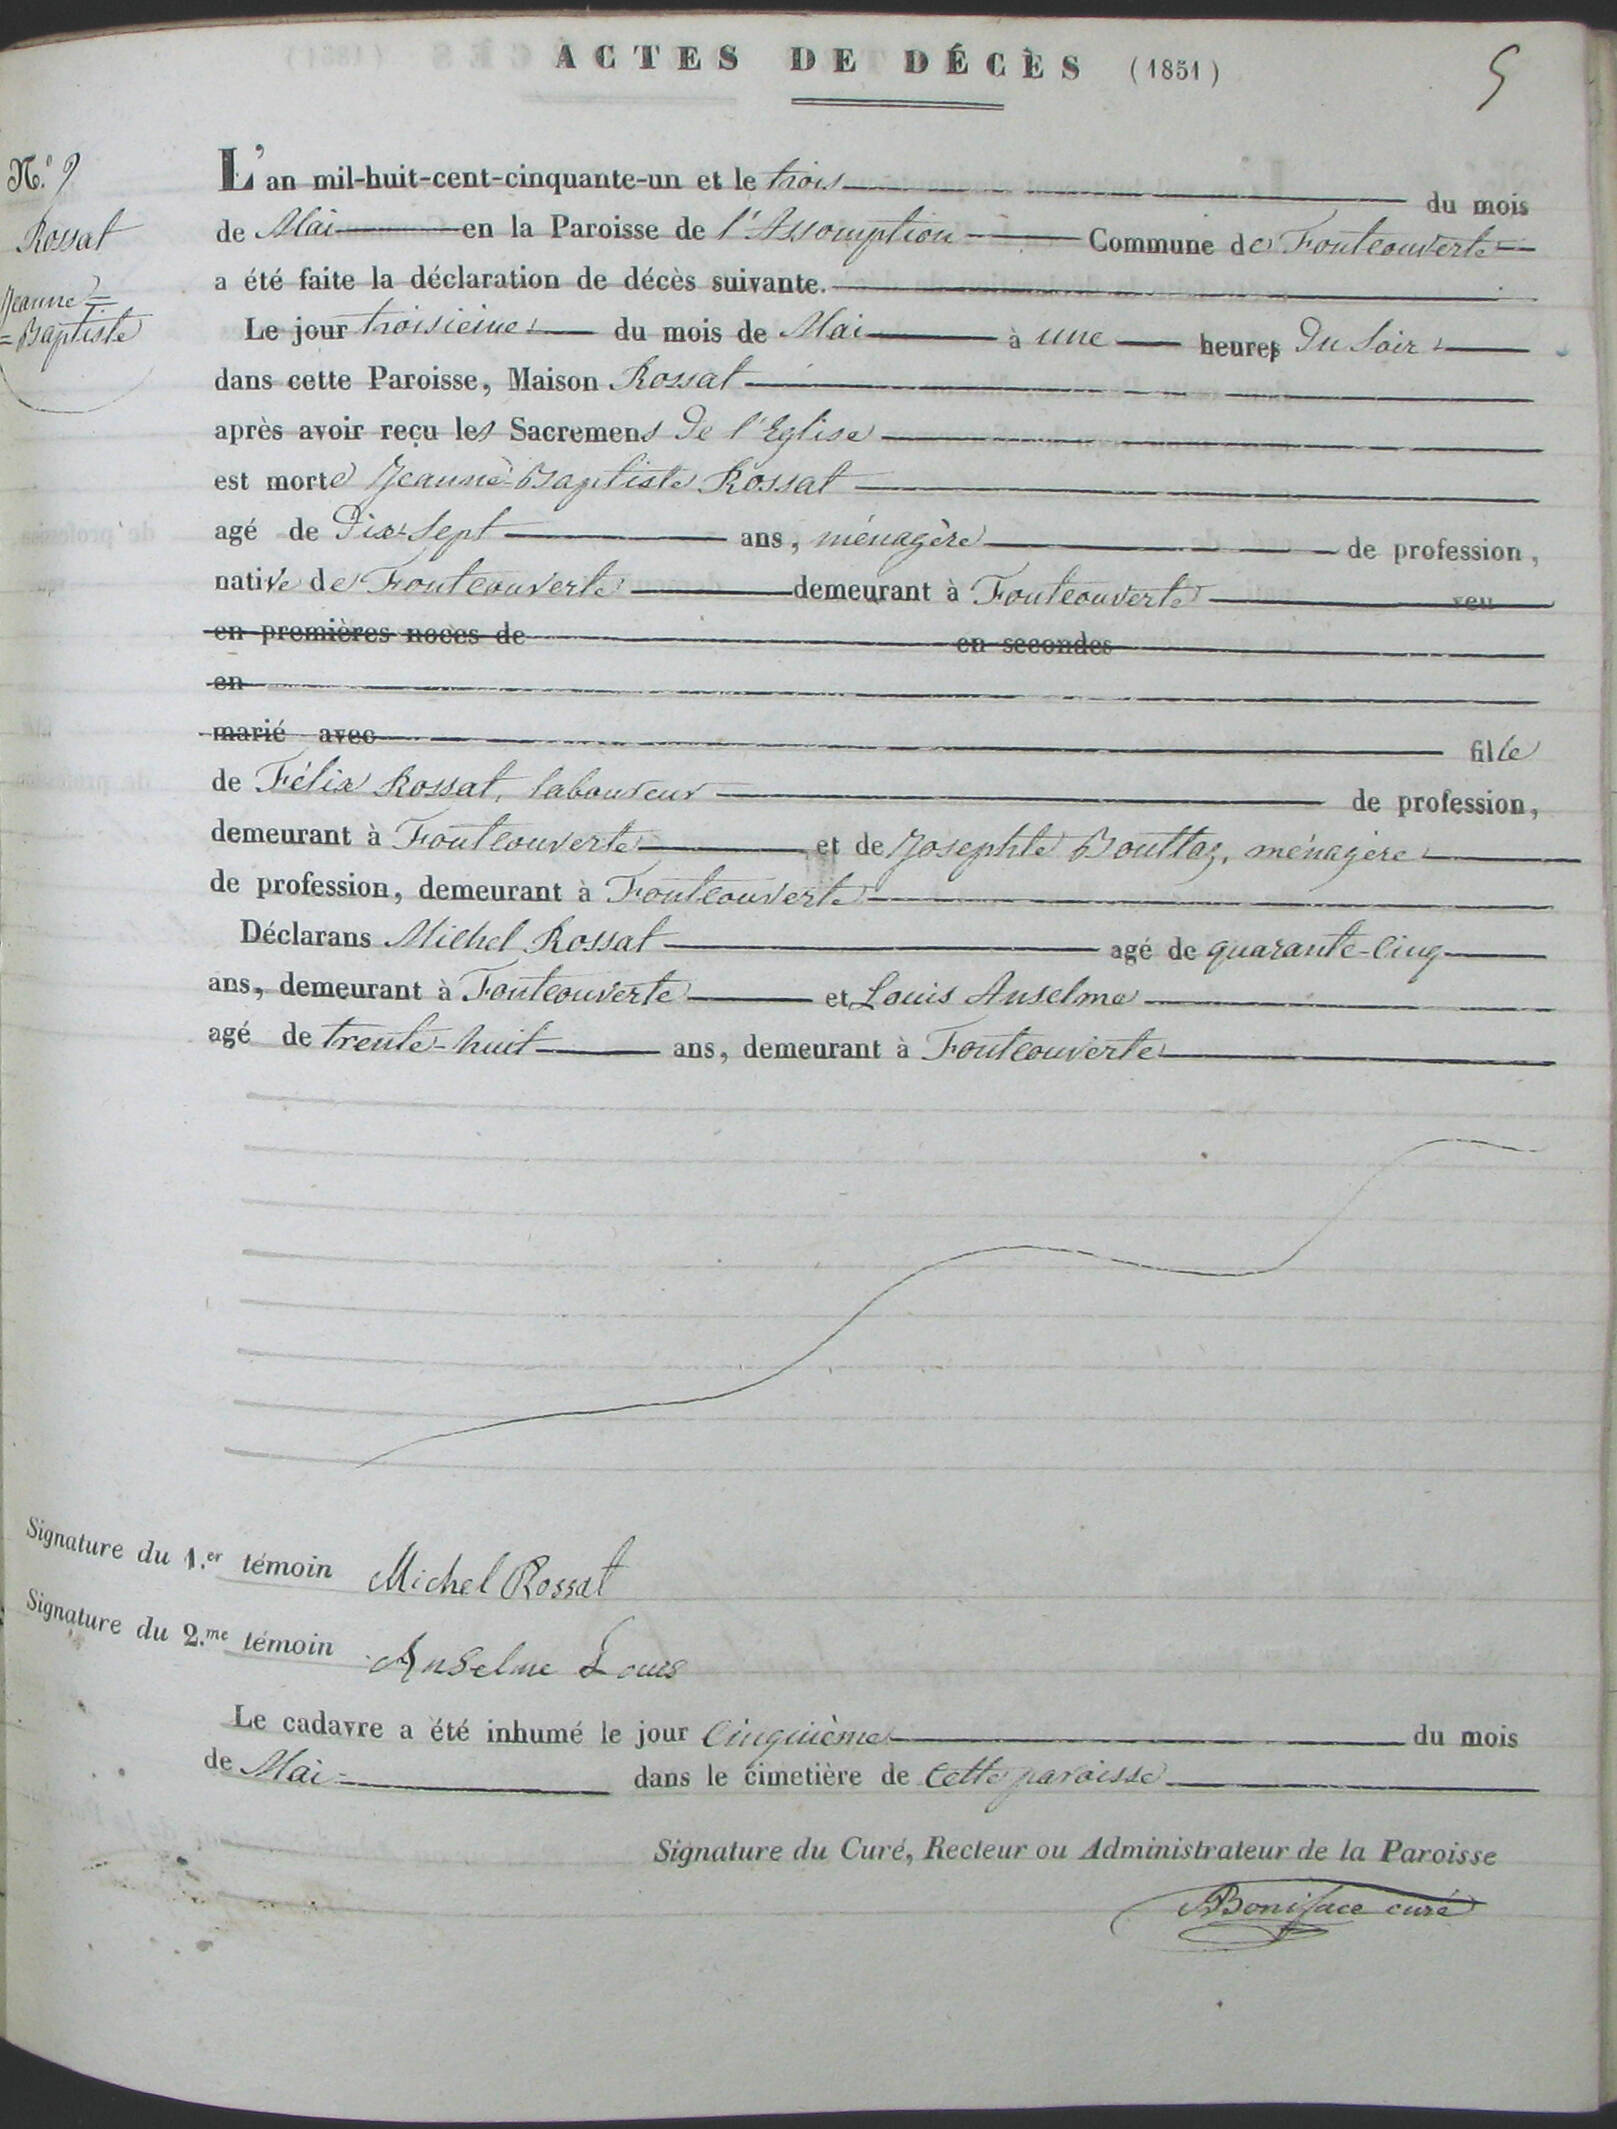 ACTES DE DÉCÈS (1851)
5
N.o 9
Rossat
Jeanne=
=Baptiste
L'an mil-huit-cent-cinquante-un et le trois du mois
de Mai en la Paroisse de l'Assomption Commune de Fontcouverte
a été faite la déclaration de décès suivante.
Le jour troisième du mois de Mai à une heures du soir
dans cette Paroisse, Maison Rossat
après avoir reçu les Sacremens de l'Eglise
est morte Jeanne-Baptiste Rossat
agé de Dix-Sept ans, ménagère de profession,
native de Fontcouverte demeurant à Fontcouverte veu
en premières noces de en secondes
en
marié avec fille
de Félix Rossat, laboureur de profession,
demeurant à Fontcouverte et de Josephte Bouttaz, ménagère
de profession, demeurant à Fontcouverte
Déclarans Michel Rossat agé de quarante-cinq
ans, demeurant à Fontcouverte et Louis Anselme
agé de trente-huit ans, demeurant à Fontcouverte
Signature du 1.er témoin Michel Rossat
Signature du 2.me témoin Anselme Louis
Le cadavre a été inhumé le jour cinquième du mois
de Mai dans le cimetière de cette paroisse
Signature du Curé, Recteur ou Administrateur de la Paroisse
Boniface curé